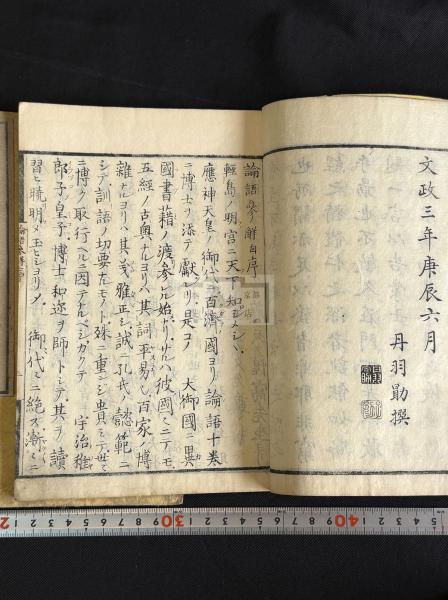 文政三年庚辰六月
丹羽勖撰
論語參解自序
輕島ノ明宮ニ天ノ下知シメシヽ
應神天皇ノ御代ニ百濟國ヨリ論語十巻
ニ博士ヲ添テ獻レリ是ヲ 大御國ニ異
國書籍ノ渡參レル始ナリサルハ彼國ニテモ
五經ノ古奧ナルヨリハ其詞平易ク百家ノ博
雜ナルヨリハ其義雅正シ誠ニ孔氏ノ懿範ニ
シテ訓語ノ切要ナルモノト殊ニ重ミシ貴ミテ世ニ
ニ博ク取行ヘルニ因テナルベシカクテ 宇治稚
郎子皇子博士和迩ヲ師トシテ其ヲ讀
習ヒ暁明メ玉ヒシヨリ 御代ニ絶ズ漸ニ
2 30 40 5